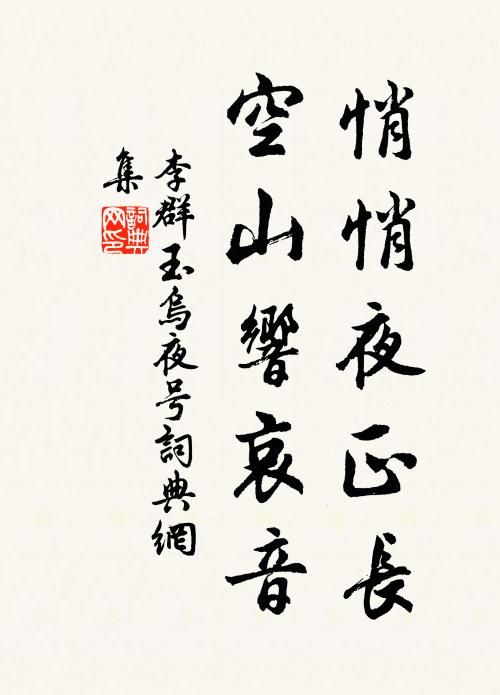 悄悄夜正長
空山響哀音
李群玉烏夜号詞典網
集
詞典網印